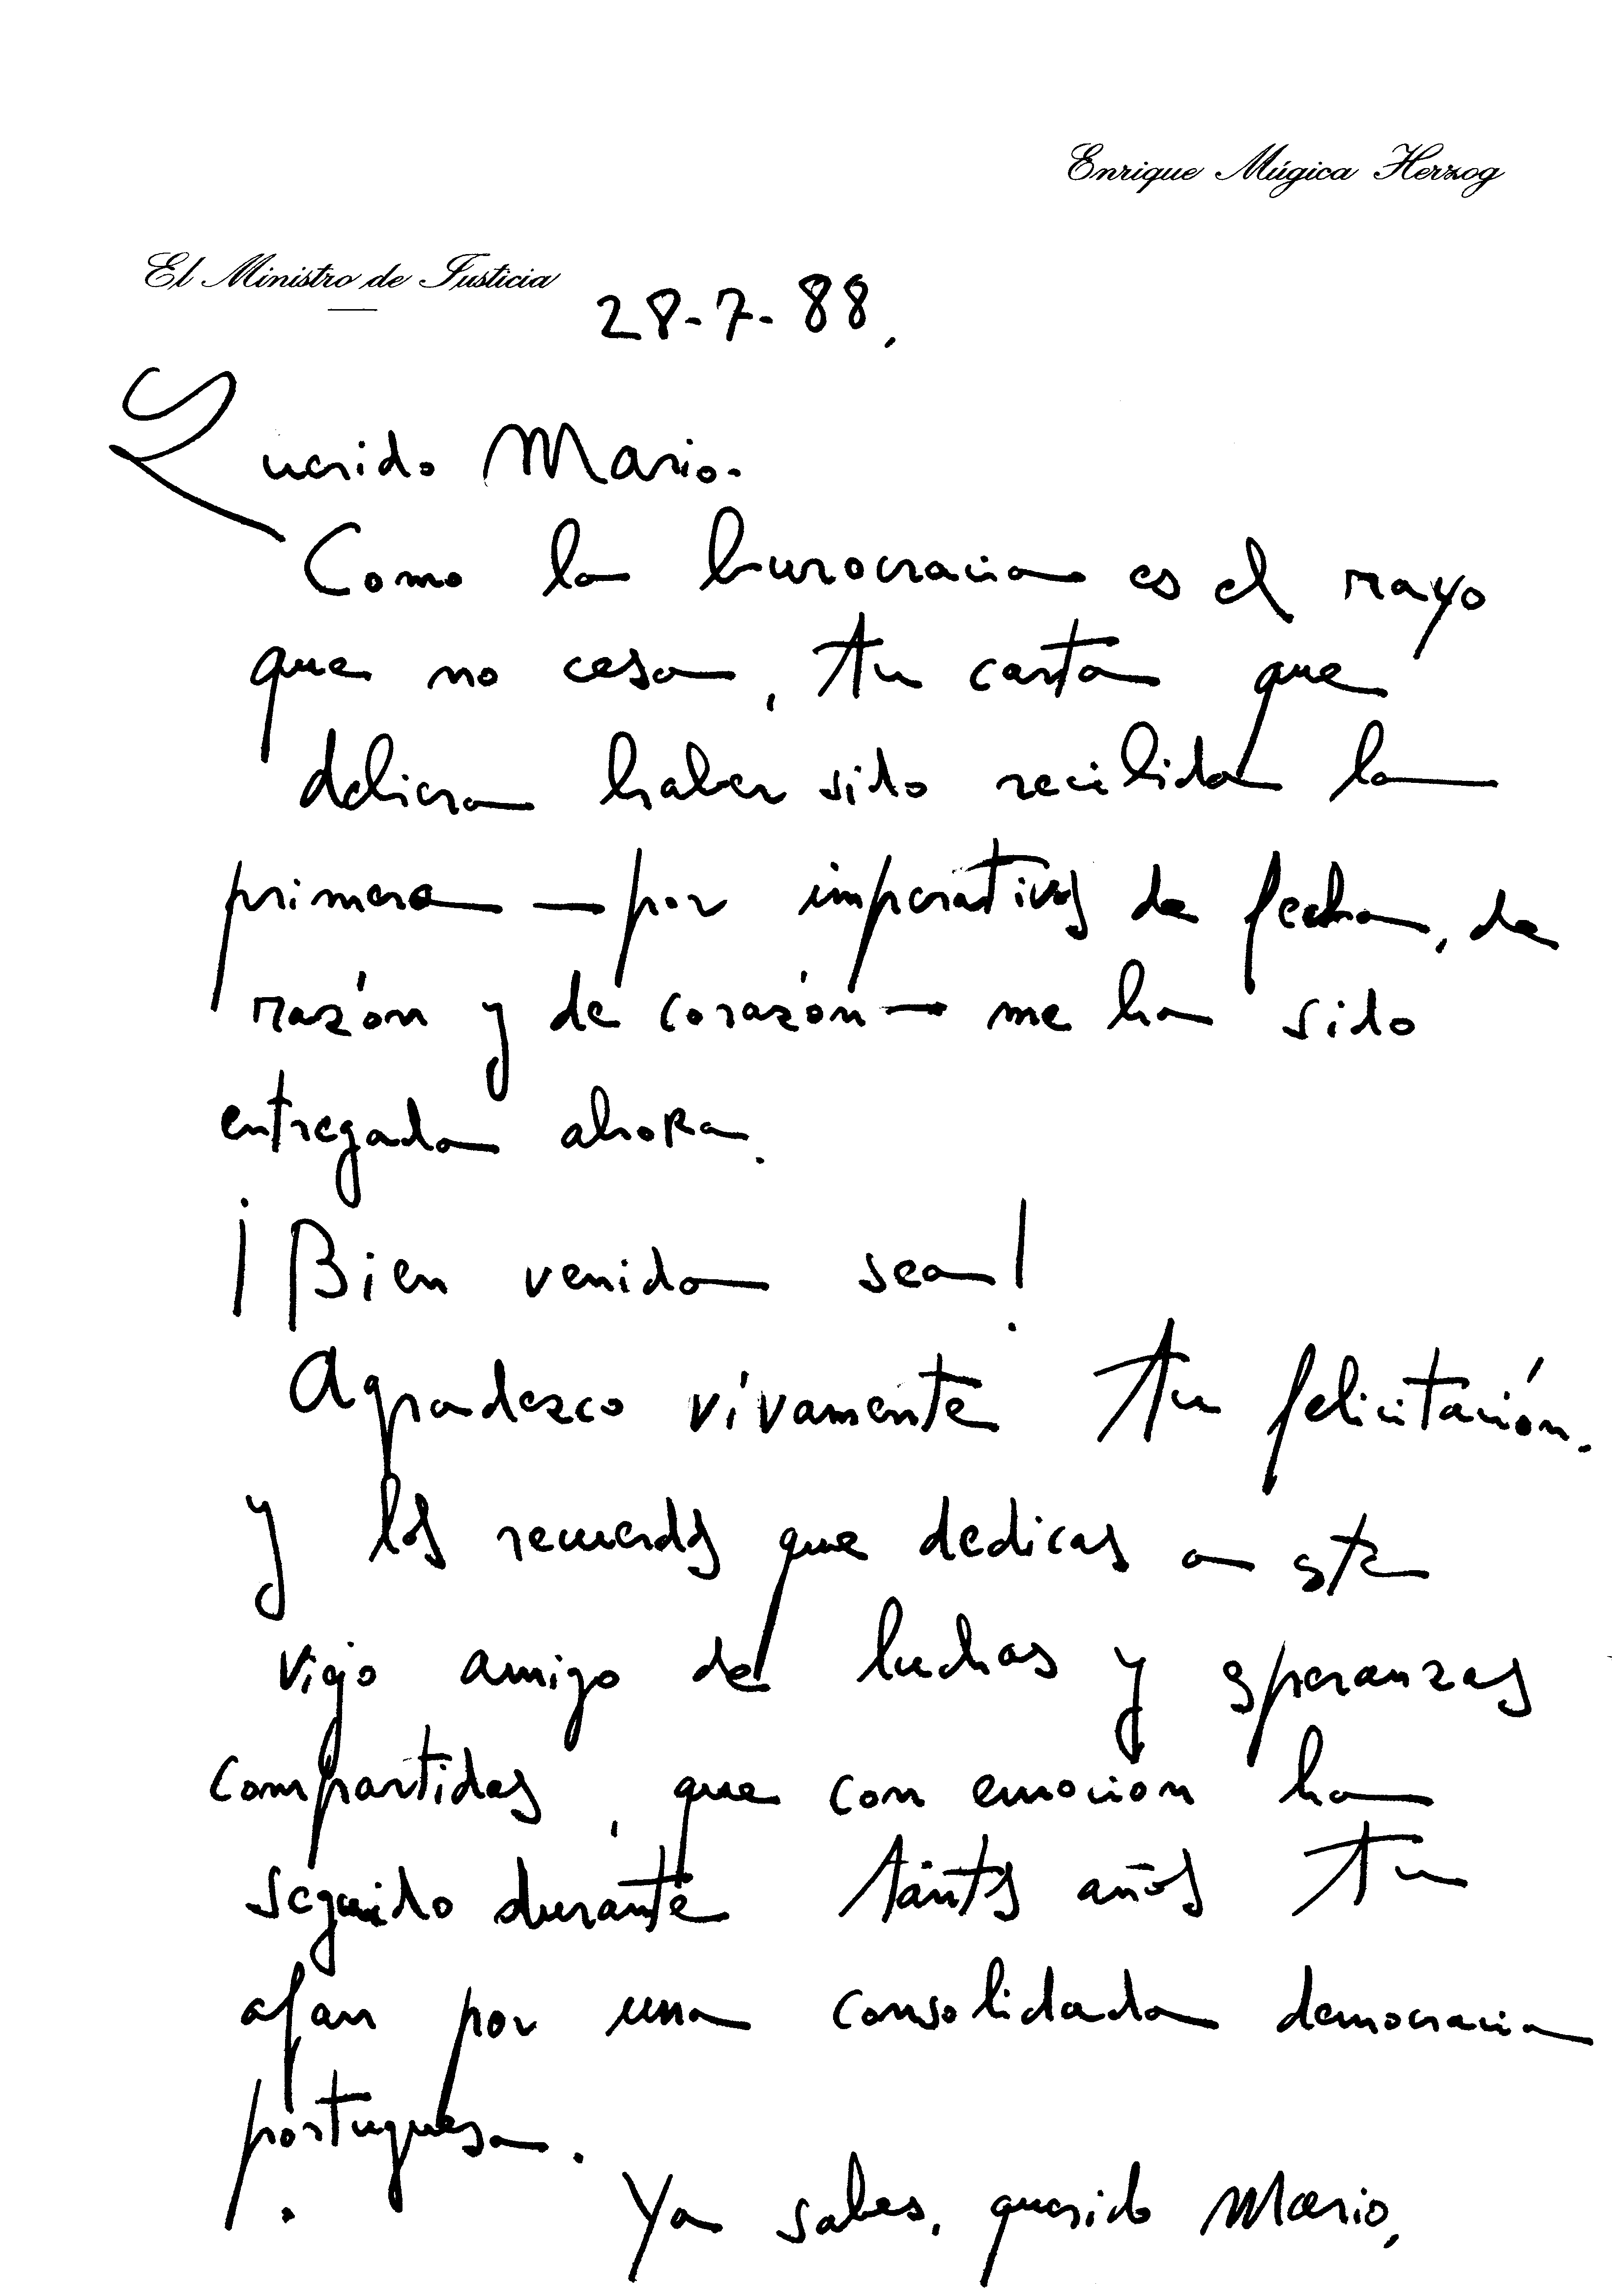 Enrique Múgica Herzog
El Ministro de Justicia
28-7-88,
Querido Mario-
Como la burocracia es el rayo
que no cesa, tu carta que
debiera haber sido recibida la
primera — por imperativos de fecha, de
razón y de corazón — me ha sido
entregada ahora.
¡Bien venida sea!
Agradezco vivamente tu felicitación.
y los recuerdos que dedicas a este
viejo amigo de luchas y esperanzas
compartidas, que con emocion ha
seguido durante tantos años tu
afan por una consolidada democracia
portuguesa.
Ya sabes, querido Mario,